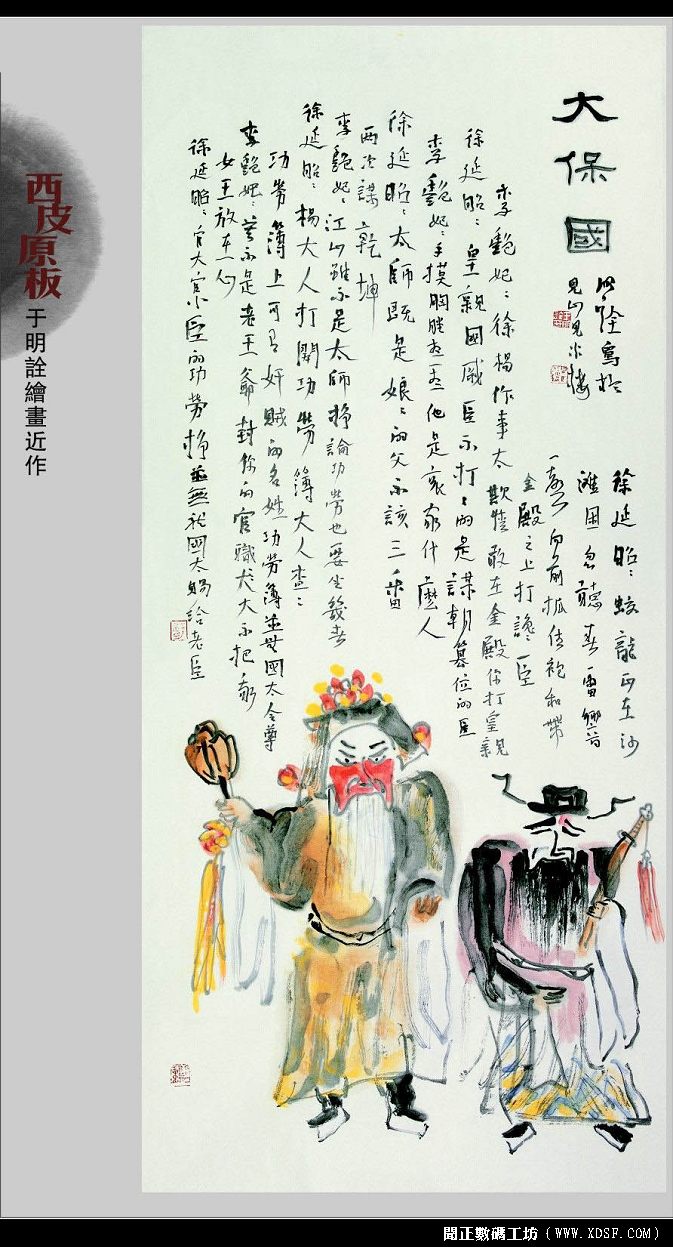 大保國
明詮寫於
見山見水樓
徐延昭：蛟龍正在沙
灘困忽聽春雷響一聲
向前抓住袍和帶
金殿之上打讒臣
李艷妃：徐楊作事太欺情敢在金殿你打皇親
徐延昭：皇親國戚臣不打打的是謀朝篡位的臣
李艷妃：手摸胸膛想一想他是哀家什麼人
徐延昭：太師既是娘娘的父不該三番
兩次謀乾坤
李艷妃：江山雖不是太師掙論功勞也要坐幾春
徐延昭：楊大人打開功勞簿大人查查
功勞簿上可有奸賊的名姓功勞簿並無國太令尊
李艷妃：若不是老王爺封你的官職大大不把
女王放在心
徐延昭：官大官小臣的功勞掙並無國太賜給老臣
西皮原板
于明詮繪畫近作
聞正數碼工坊（WWW.XDSF.COM）